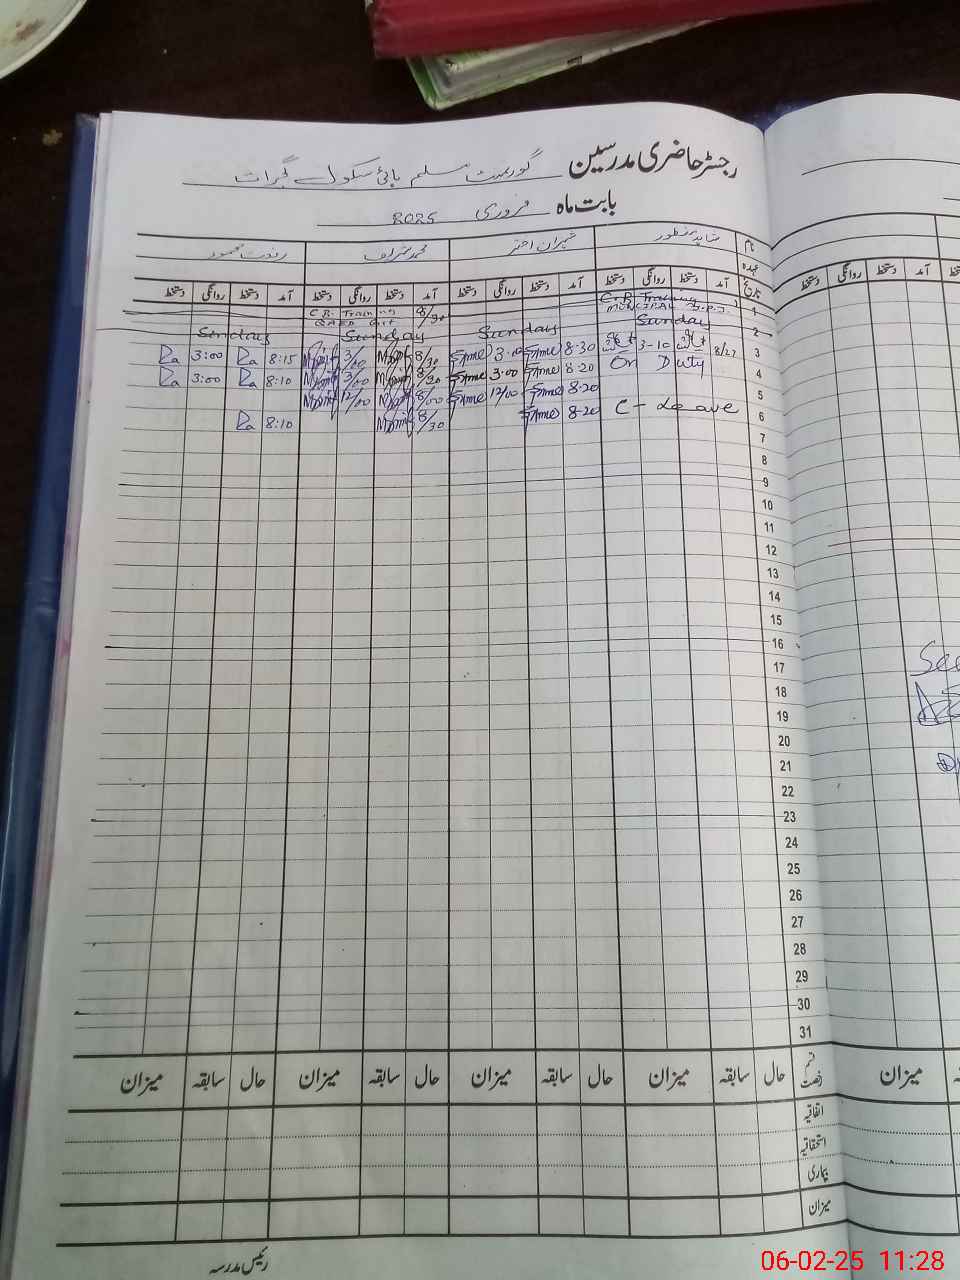 رجسٹر حاضری مدرسین گورنمنٹ مسلم ہائی سکول گجرات
بابت ماہ فروری 2025
نام شاہد منظور اختر محمد شریف محمود
عہدہ
تاریخ آمد دستخط روانگی دستخط آمد دستخط روانگی دستخط آمد دستخط روانگی دستخط آمد دستخط روانگی دستخط
آمد دستخط روانگی دستخط
1 C.R. Training C.R. Training 8/30
2 Sunday Sunday Sunday Sunday
3 8/27 3-10 8-30 3-00 8/30 3/00 8:15 3:00
4 On Duty 8-20 3-00 8/30 3/00 8:10 3:00
5 8-20 12/00 8/00 12/00
6 C-Leave 8-20 8/30 8:10
7
8
9
10
11
12
13
14
15
16
17
18
19
20
21
22
23
24
25
26
27
28
29
30
31
قسم رخصت حال سابقہ میزان حال سابقہ میزان حال سابقہ میزان حال سابقہ میزان
میزان
اتفاقیہ
استحقاقیہ
بیماری
میزان
رئیس مدرسہ
06-02-25 11:28